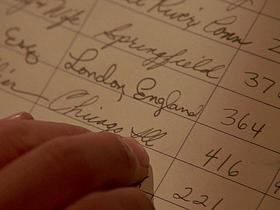 River, Conn
Wife Springfield 37
Esq London, England 364
Chicago Ill 416
221